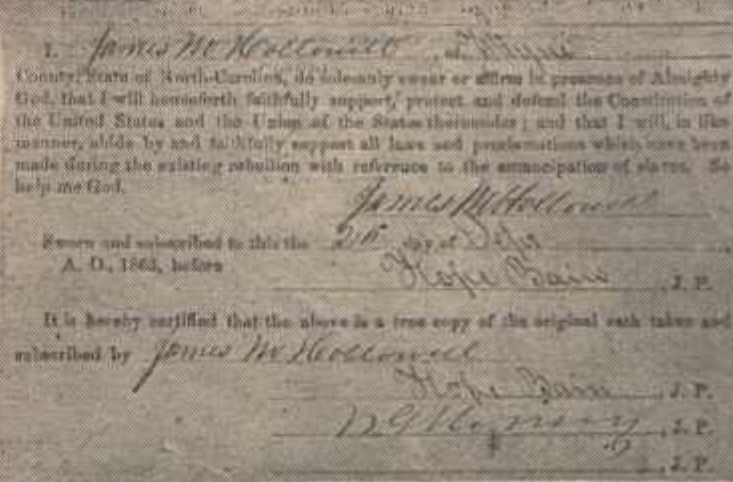 I, James M Hollowell, of Wayne
County, State of North-Carolina, do solemnly swear or affirm in presence of Almighty
God, that I will henceforth faithfully support, protect and defend the Constitution of
the United States and the Union of the States thereunder; and that I will, in like
manner, abide by and faithfully support all laws and proclamations which have been
made during the existing rebellion with reference to the emancipation of slaves. So
help me God.
James M Hollowell
Sworn and subscribed to this the day of Sept
A. D., 1865, before
Hope Bain, J. P.
It is hereby certified that the above is a true copy of the original oath taken and
subscribed by James M Hollowell
Hope Bain, J. P.
, J. P.
, J. P.